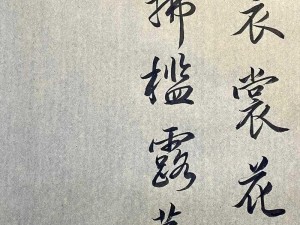 衣裳花
拂檻露